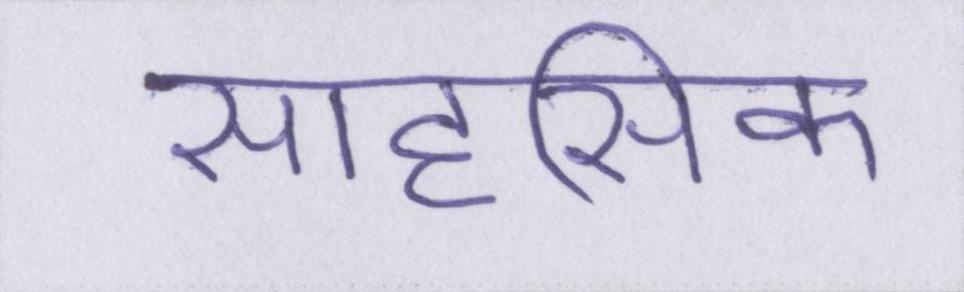 साहसिक